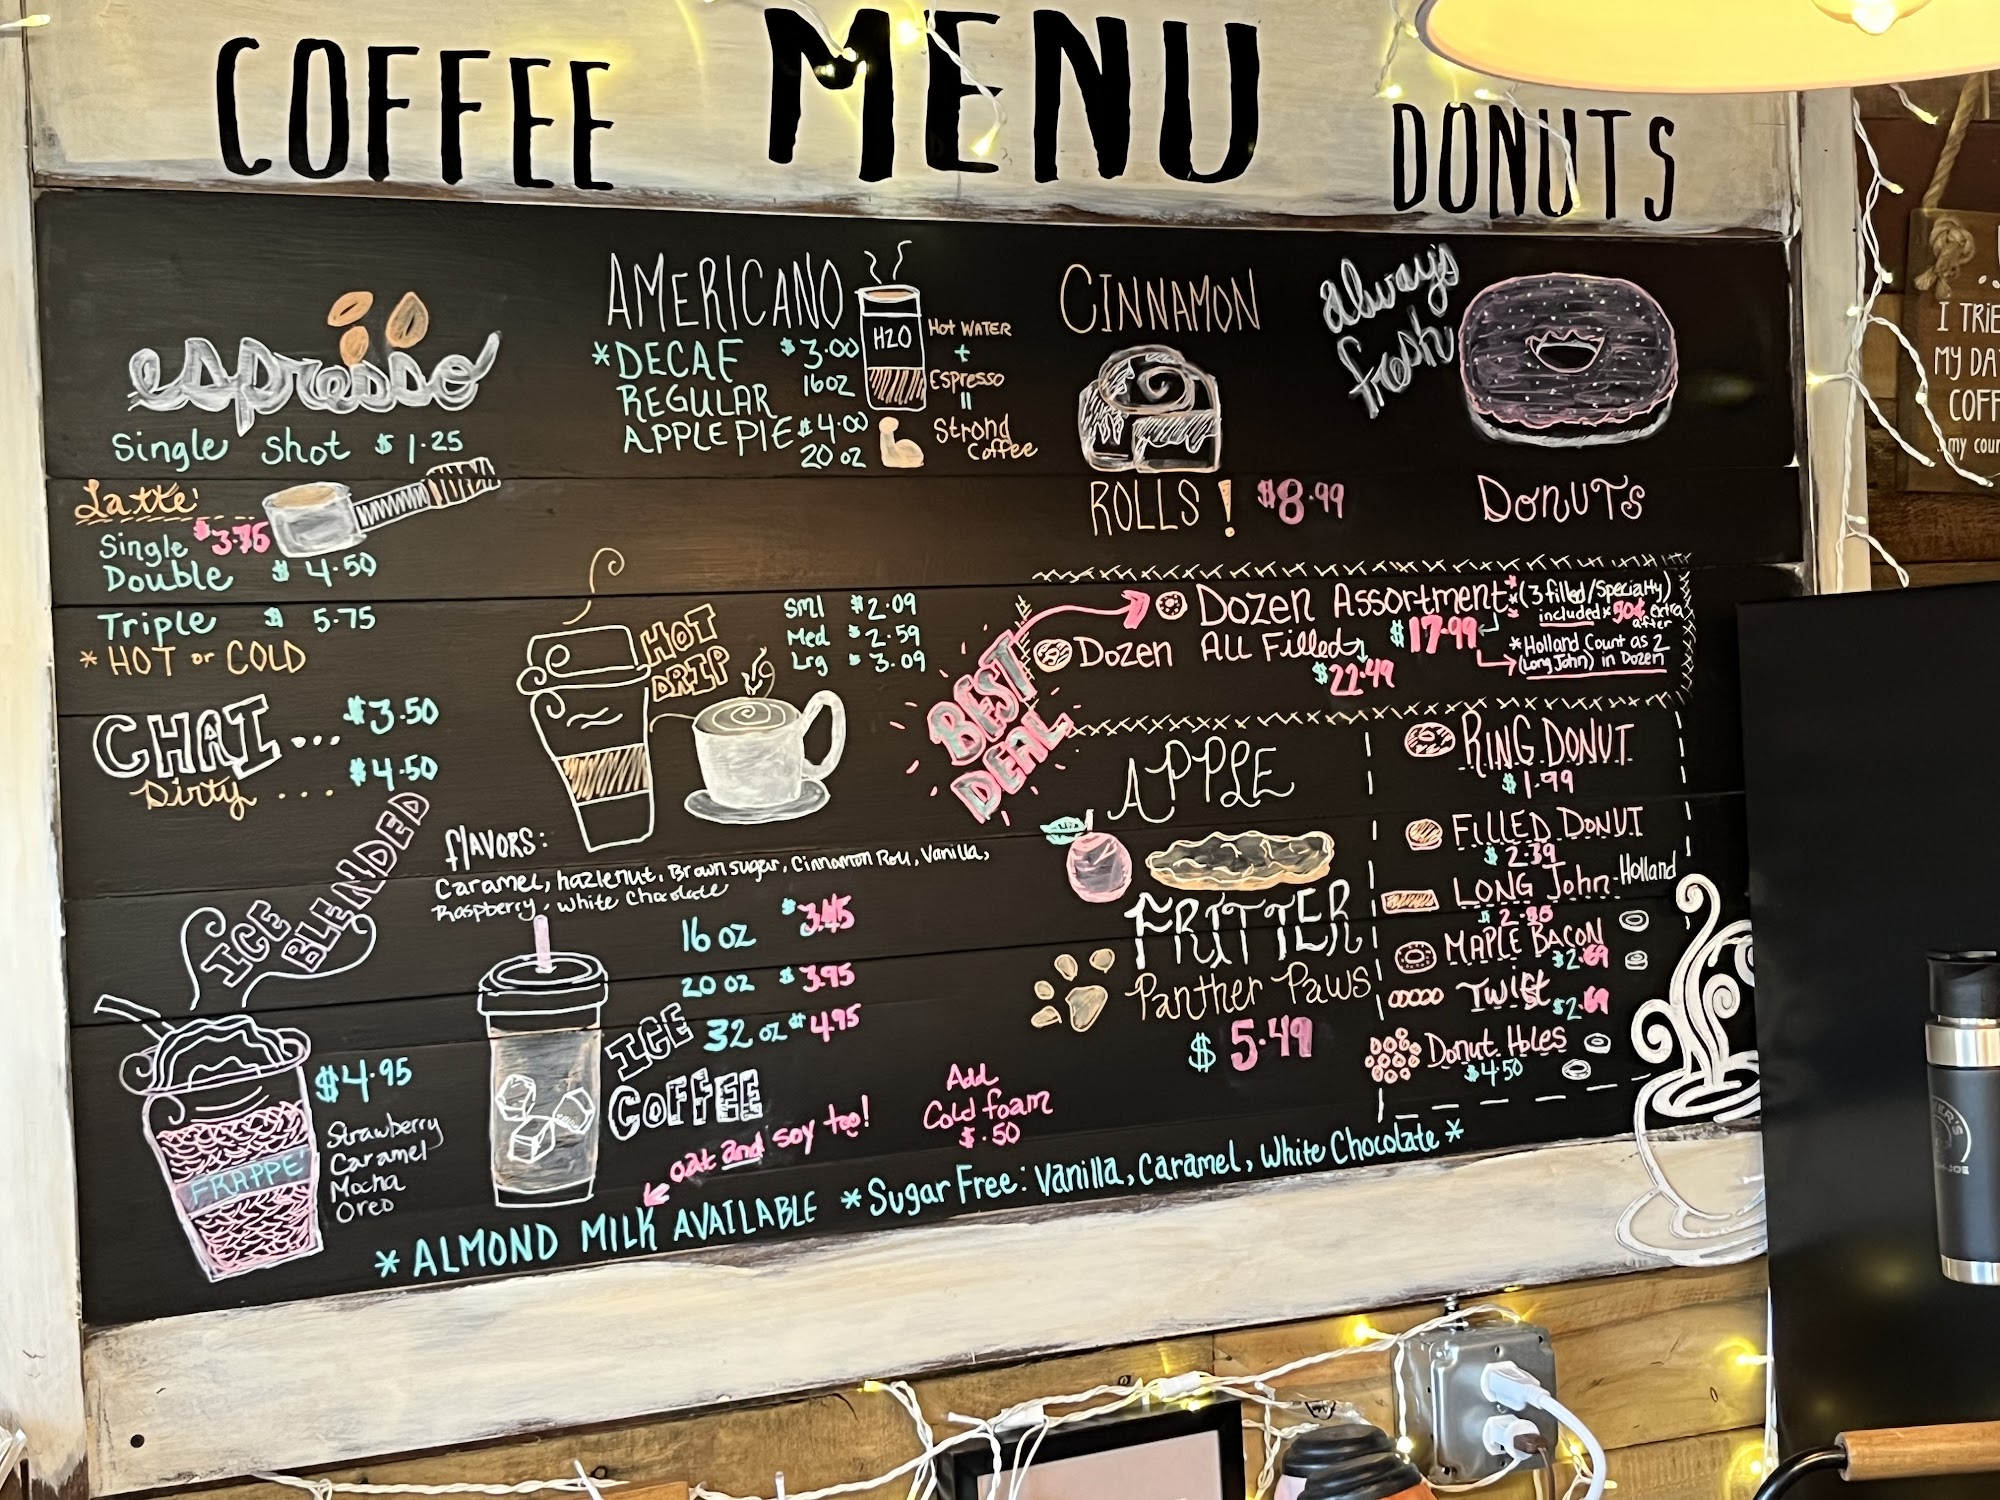 COFFEE MENU DONUTS
espresso
Single Shot $1.25
Latte'
Single $3.75
Double $4.50
Triple $5.75
* HOT or COLD
CHAI... $3.50
Dirty ... $4.50
ICE
BLENDED
FRAPPE'
$4.95
Strawberry
Caramel
Mocha
Oreo
AMERICANO
*DECAF $3.00
REGULAR 16oz
APPLE PIE $4.00
20 oz
H2O
Hot WATER
+
Espresso
=
Strong
Coffee
HOT
DRIP
Sml $2.09
Med $2.59
Lrg $3.09
flavors:
Caramel, hazlenut, Brown sugar, Cinnamon Roll, Vanilla,
Raspberry, White Chocolate
16 oz $3.45
20 oz $3.95
32 oz $4.95
ICE
COFFEE
oat and soy too!
Add
Cold foam
$.50
* ALMOND MILK AVAILABLE * Sugar Free: Vanilla, Caramel, White Chocolate *
CINNAMON
ROLLS! $8.99
always
fresh
DONUTS
BEST
DEAL
Dozen Assortment * (3 filled/Specialty)
$17.99 included * 50¢ extra
after
Dozen All Filled
$22.49
* Holland Count as 2
(Long John) in Dozen
APPLE
FRITTER
Panther Paws
$5.49
RING DONUT
$1.99
FILLED DONUT
$2.39
LONG John-Holland
MAPLE BACON
$2.69
Twist $2.69
Donut Holes
$4.50
I TRIE
MY DA
COFF
my cour